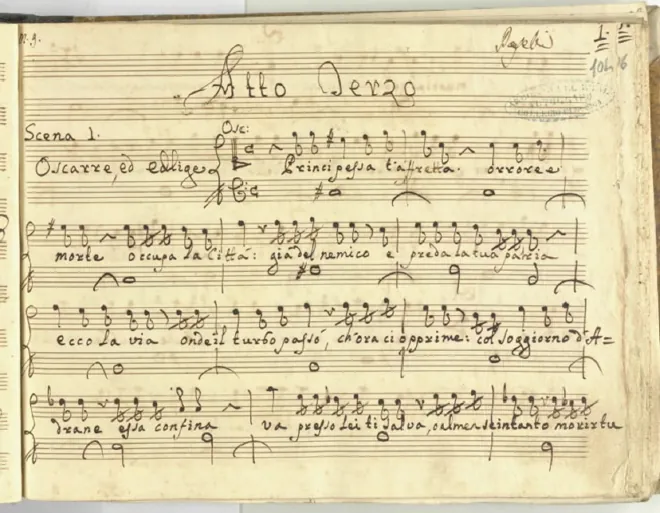 N. 3.
1.
Atto Terzo
Scena 1.
Osc:
Oscarre, ed edvige
Principessa t'affretta. orrore e
morte occupa la Città: già del nemico e preda la tua patria
ecco la via onde il turbo passò, ch'ora ci opprime: col soggiorno d'A=
drane essa confina va presso lei ti salva, o almen se intanto morir tu